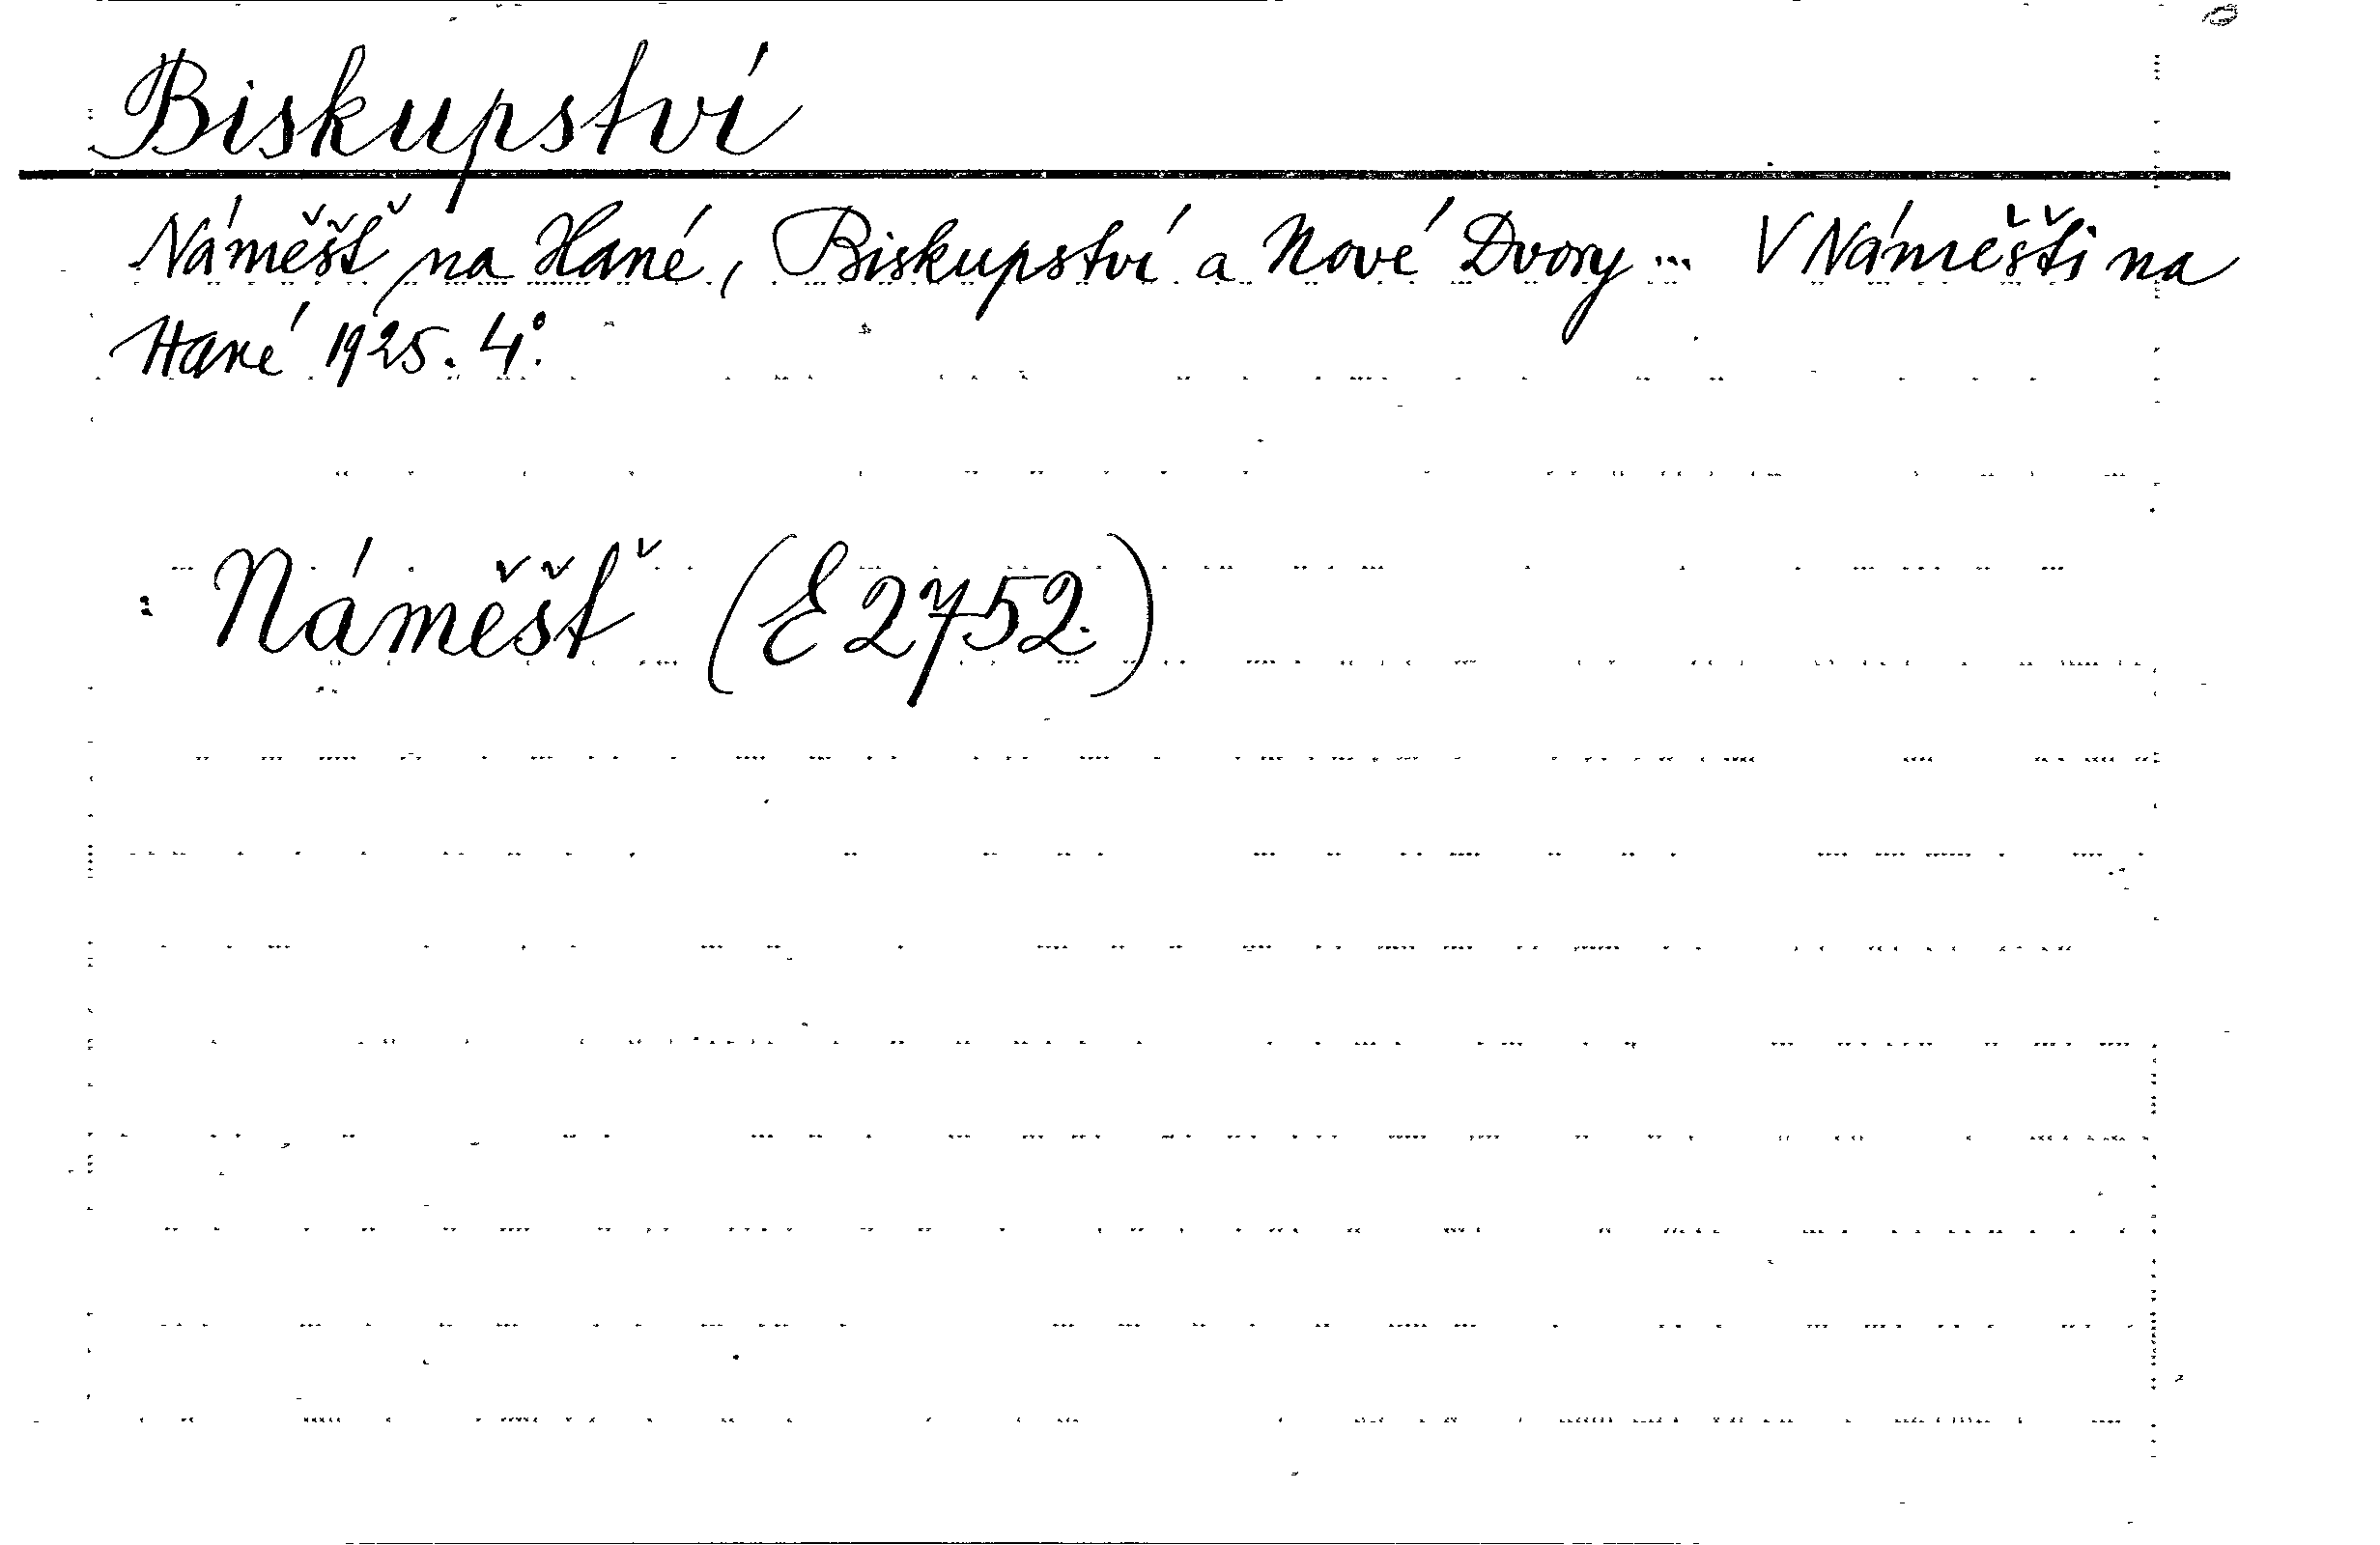 Biskupství
Náměšť na Hané, Biskupství a Nové Dvory... V Náměšti na
Hané 1925. 4°.
: Náměšť (E 2752.)